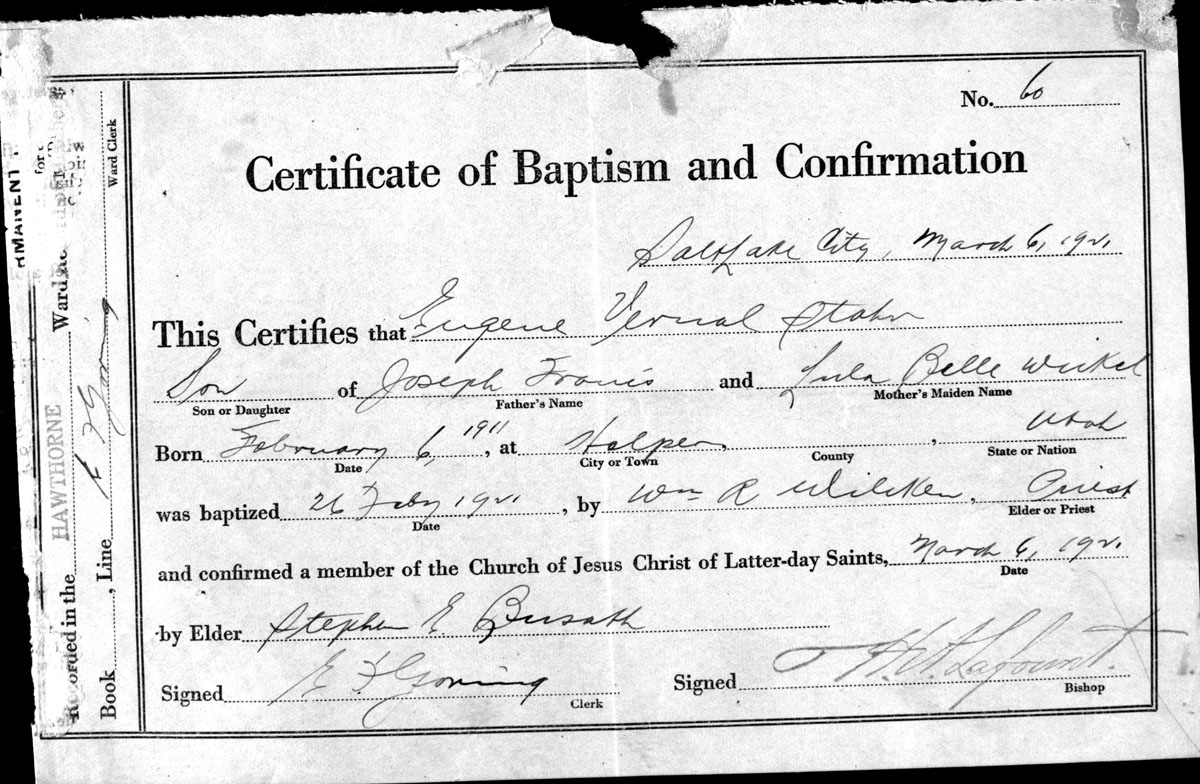 No. 60
Certificate of Baptism and Confirmation
Salt Lake City, March 6, 1921
This Certifies that Eugene Vernal Stahr
Son of Joseph Francis and Lula Belle Wickel
Son or Daughter Father's Name Mother's Maiden Name
Born February 6, 1911, at Halper, , Utah
Date City or Town County State or Nation
was baptized 26 Feby 1921, by Wm R Wilcken, Priest
Date Elder or Priest
and confirmed a member of the Church of Jesus Christ of Latter-day Saints, March 6, 1921
Date
by Elder Stephen E. Busath
Signed E F Goring Signed H. A. Lafount.
Clerk Bishop
Recorded in the HAWTHORNE Ward
Book , Line Ward Clerk
RMANENT